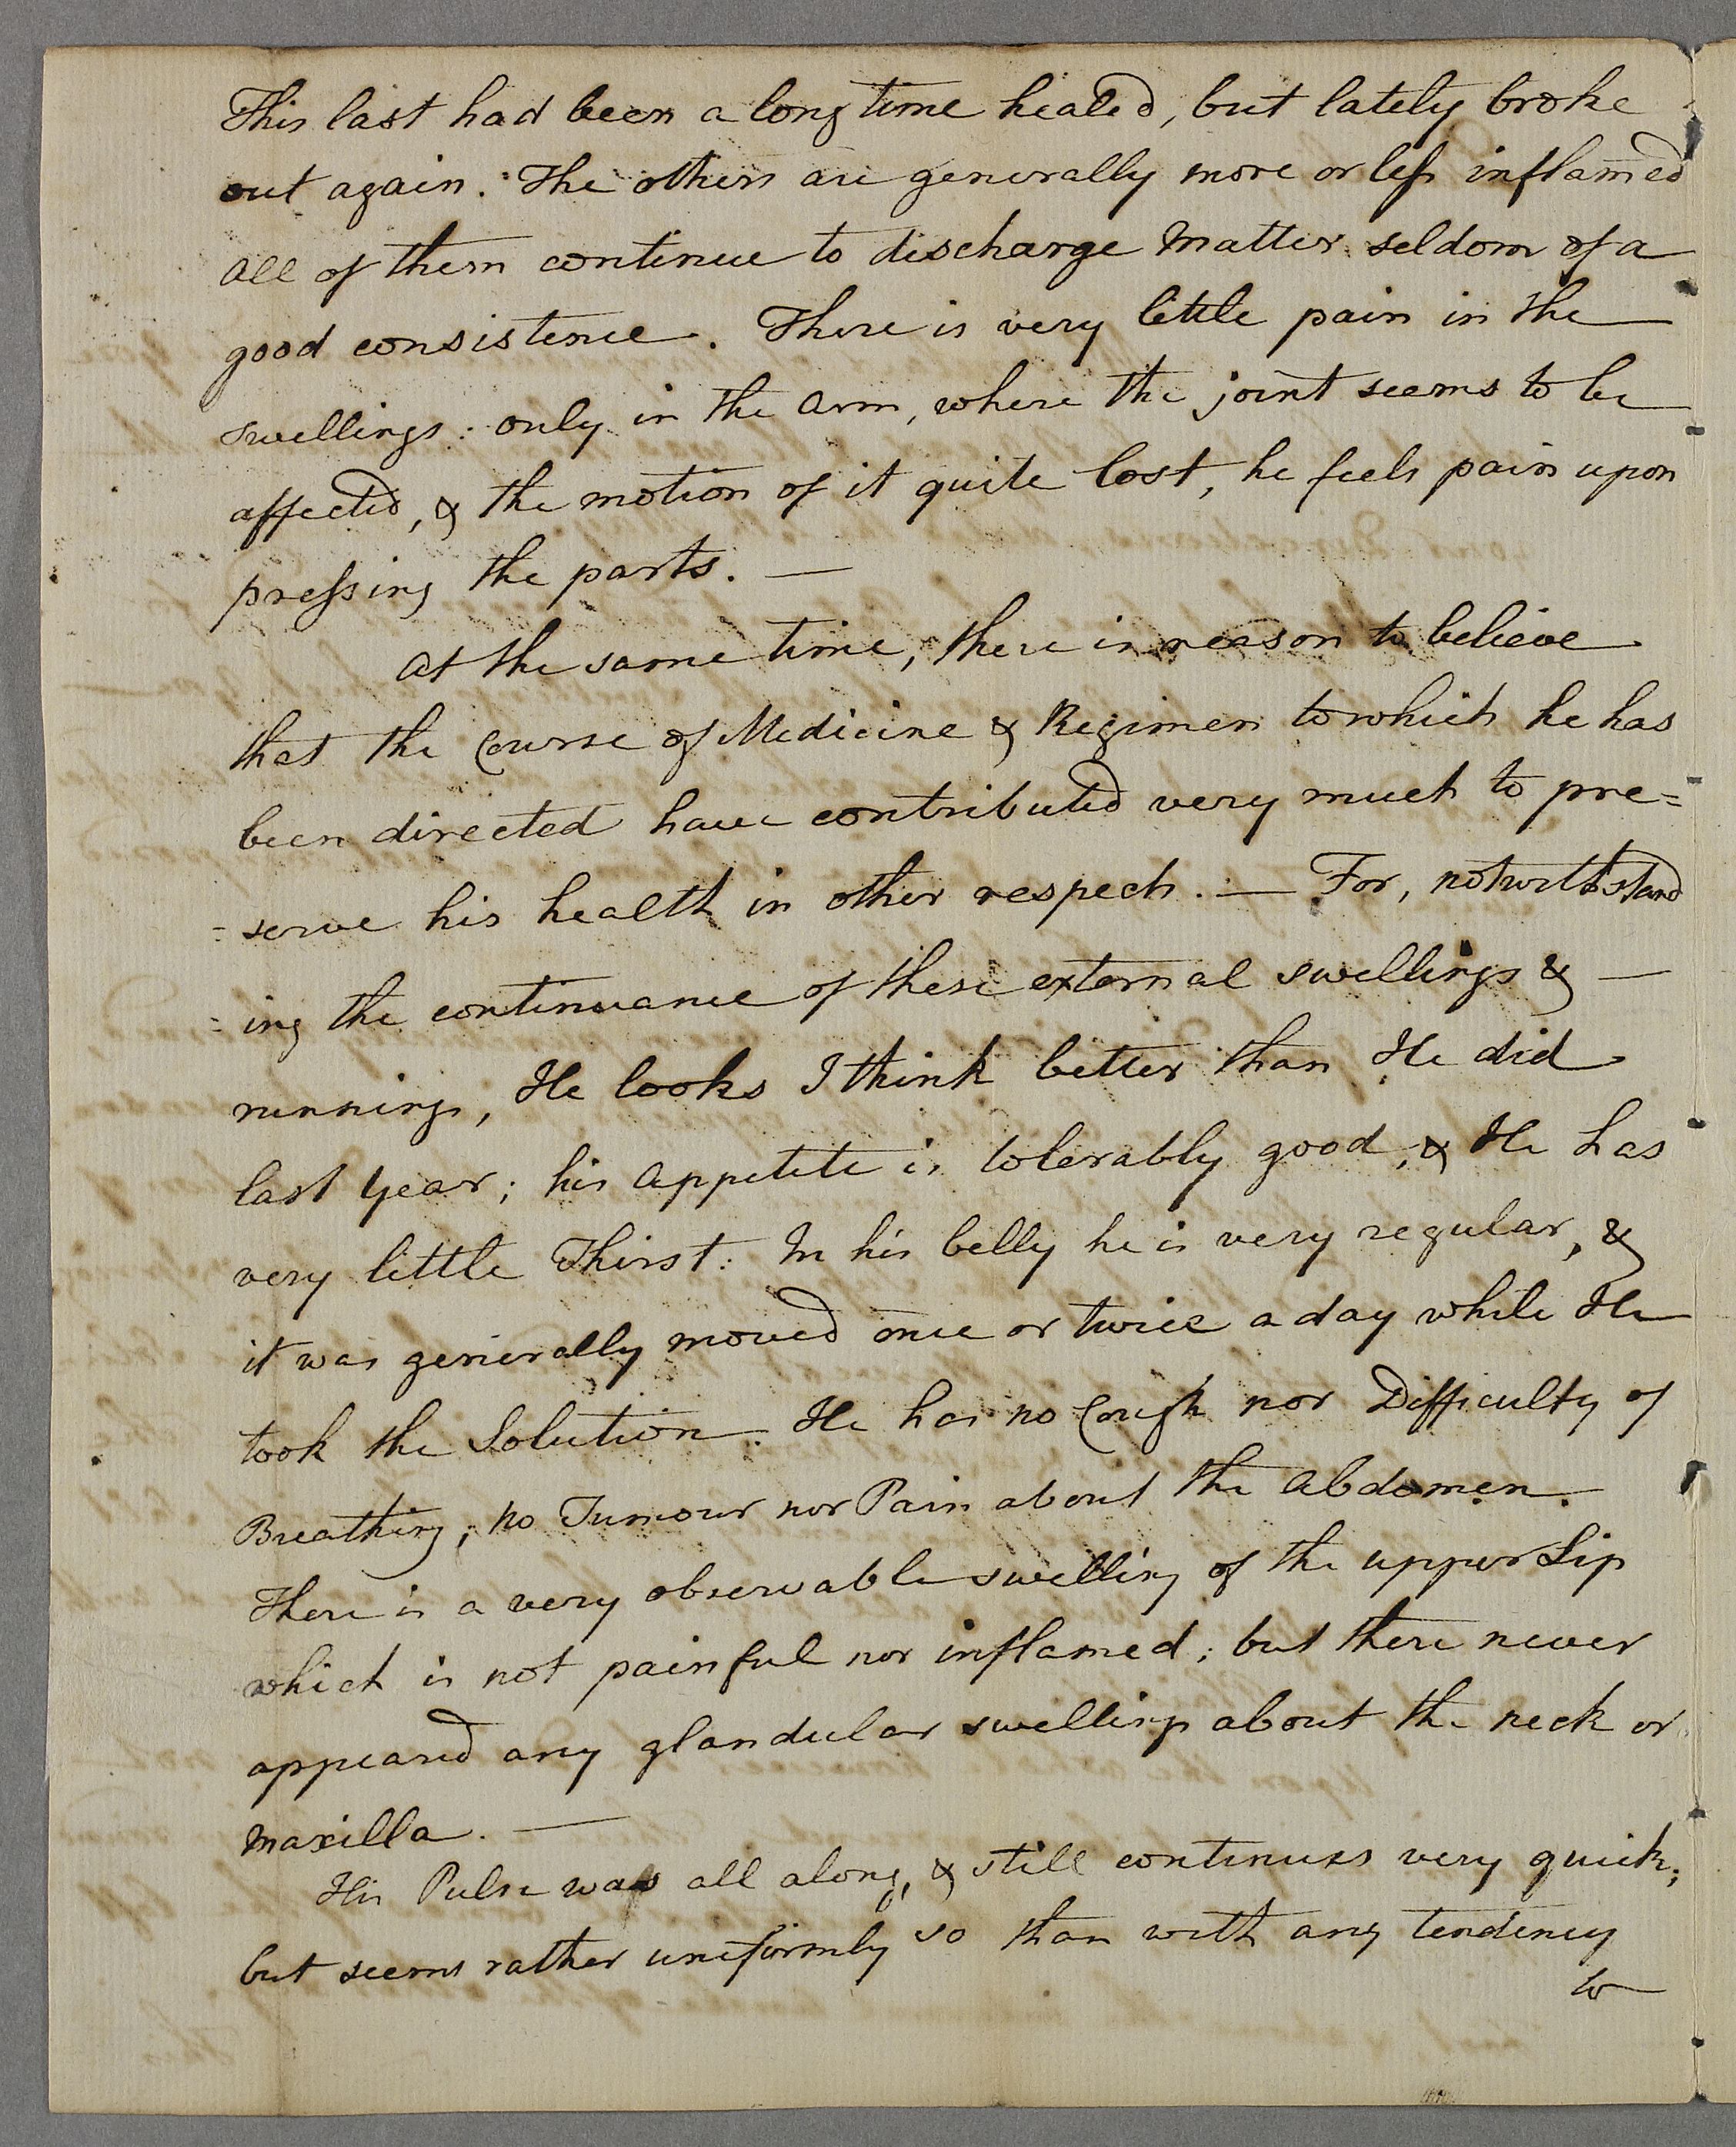 This last had been a long time healed, but lately broke
out again. The others are generally more or less inflamed
all of them continue to discharge Matter seldom of a
good consistence. There is very little pain in the
swellings: only in the arm, where the joint seems to be
affected, & the motion of it quite lost, he feels pain upon
pressing the parts. —
At the same time, there is reason to believe
that the Course of Medicine & Regimen to which he has
been directed have contributed very much to pre=
=serve his health in other respects. — For, notwithstand
=ing the continuance of these external swellings & —
runnings, He looks I think better than He did
last Year; his appetite is tolerably good, & He has
very little Thirst: In his belly he is very regular, &
it was generally moved once or twice a day while He
took the Solution. He has no Cough nor Difficulty of
Breathing, no Tumour nor Pain about the Abdomen.
There is a very observable swelling of the upper Lip
which is not painful nor inflamed; but there never
appeared any glandular swellings about the neck or
Maxilla. —
His Pulse was all along, & still continues very quick;
but seems rather uniformly so than with any tendency
to